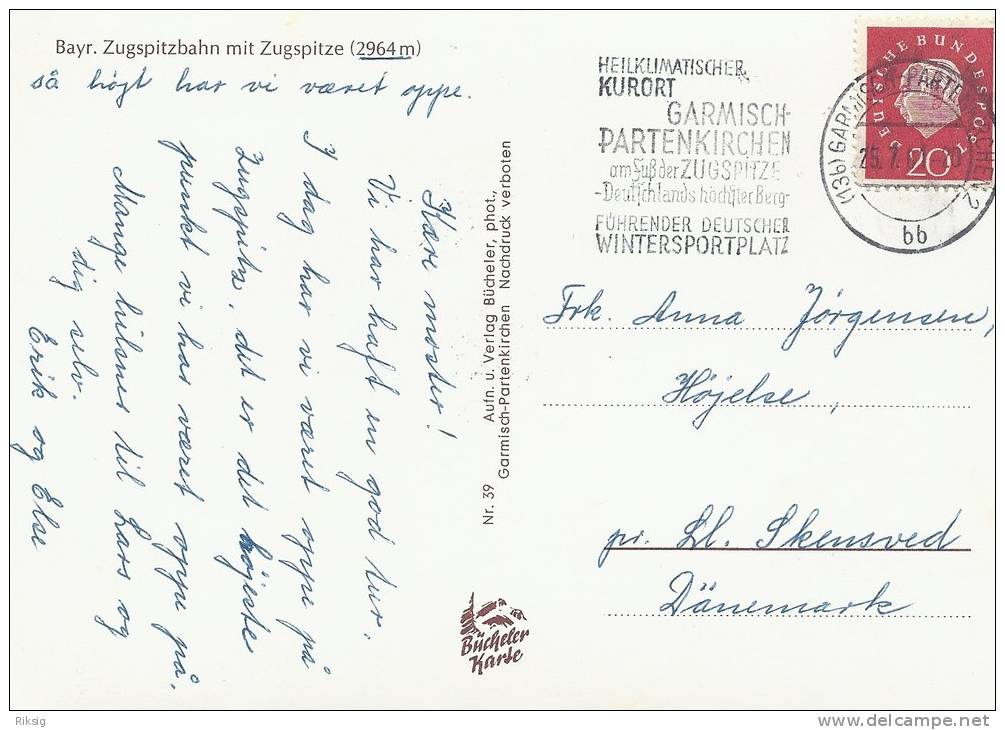 Bayr. Zugspitzbahn mit Zugspitze (2964 m)
så högt har vi været oppe.
Kære moster!
Vi har haft en god tur.
I dag har vi været oppe på
Zugspitz, det er det højeste
punkt vi har været oppe på.
Mange hilsner til Lars og
dig selv.
Erik og Else
Nr. 39 Aufn. u. Verlag Bücheler, phot.,
Garmisch-Partenkirchen Nachdruck verboten
Bücheler
Karte
HEILKLIMATISCHER
KURORT
GARMISCH-
PARTENKIRCHEN
am Fuß der ZUGSPITZE
-Deutschlands höchster Berg-
FÜHRENDER DEUTSCHER
WINTERSPORTPLATZ
DEUTSCHE BUNDESPOST
20
(13b) GARMISCH-PARTENKIRCHEN 2
25.7.
bb
Frk. Anna Jörgensen,
Höjelse,
pr. Ll. Skensved
Dänemark
Riksig
delcampe.net